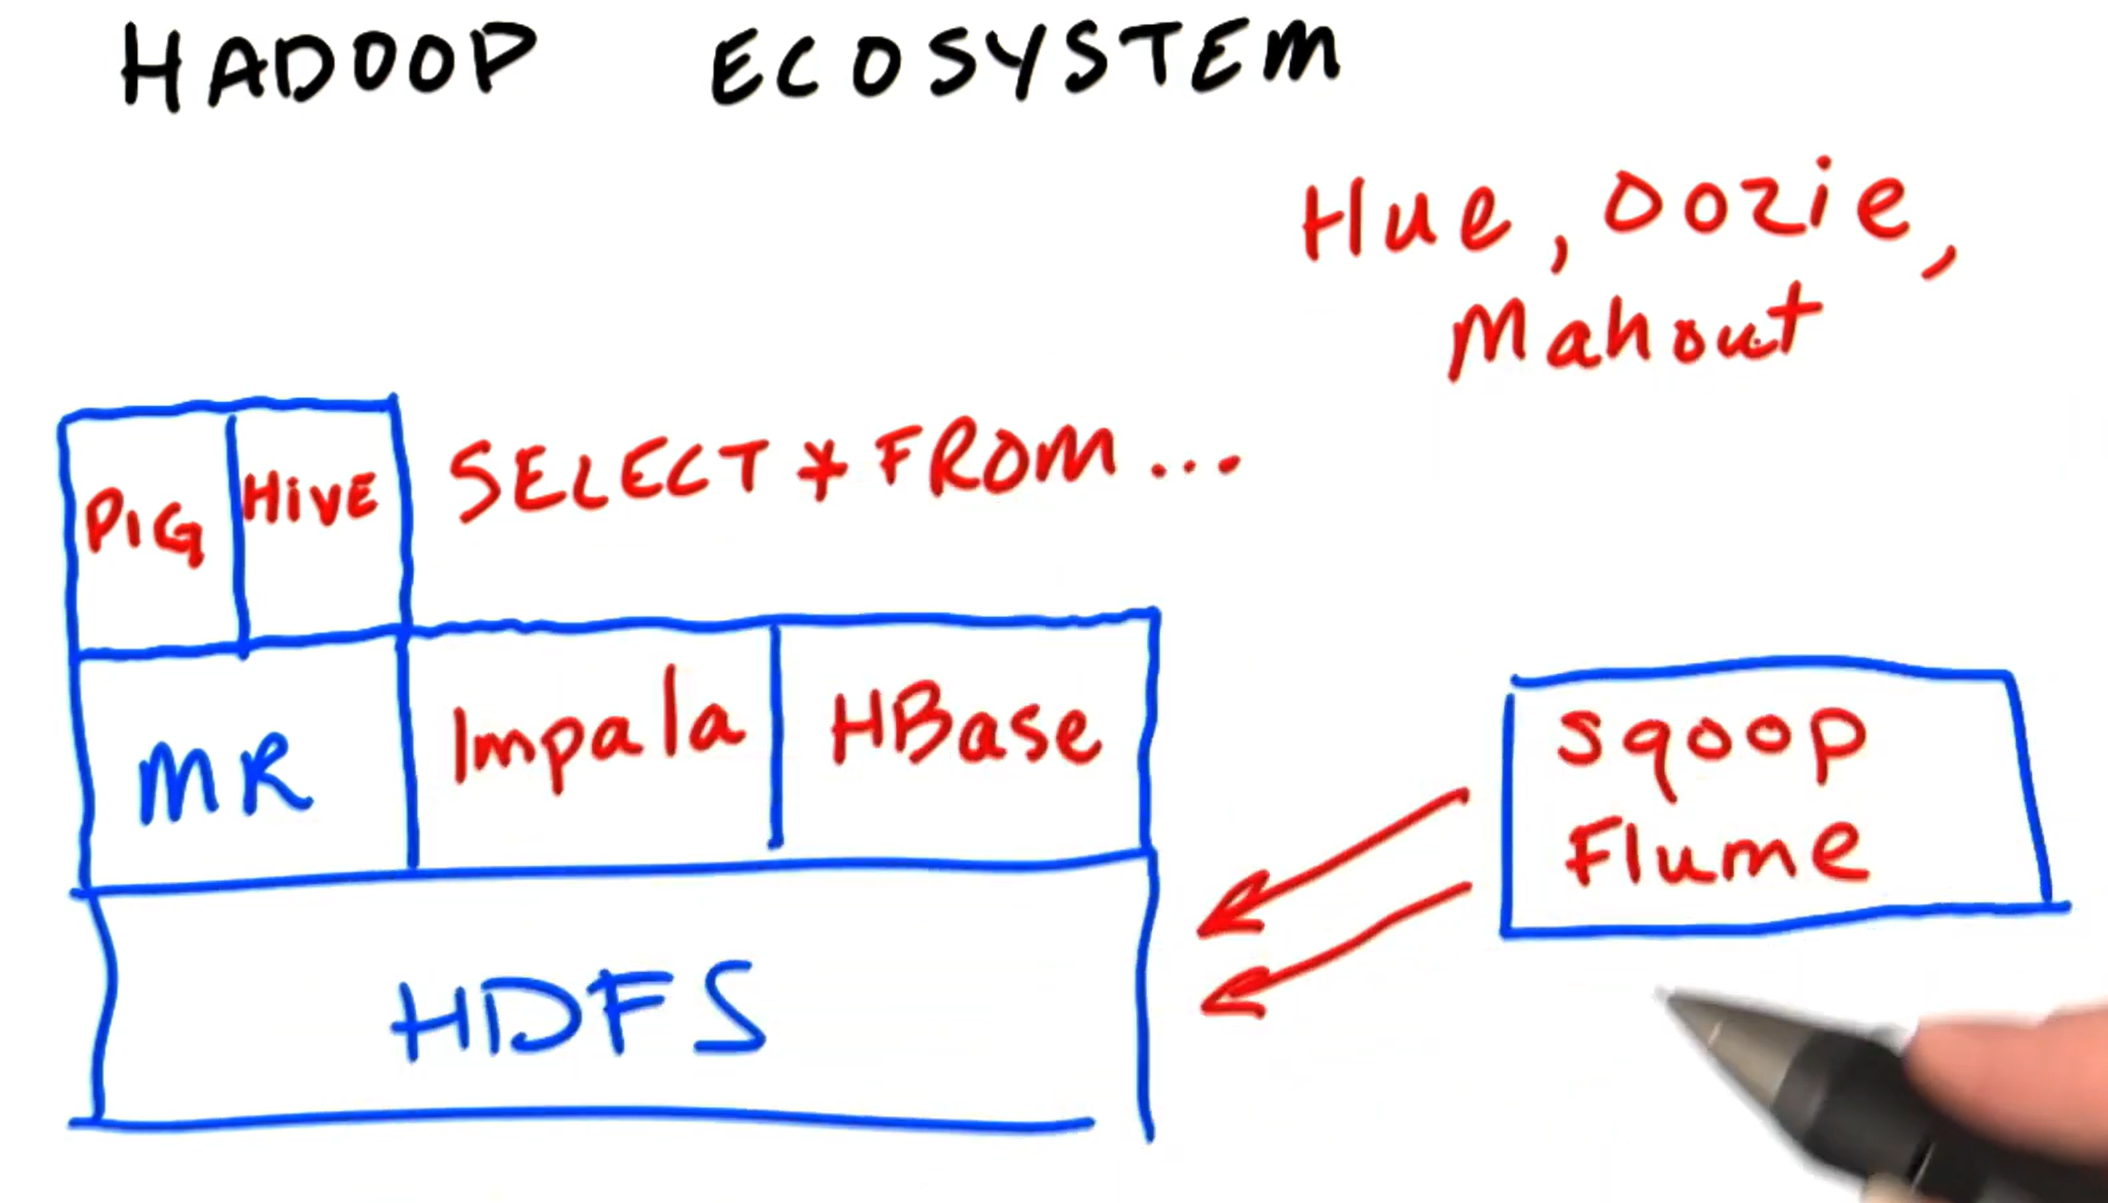 HADOOP ECOSYSTEM
Hue, Oozie,
Mahout
PIG HiVE SELECT * FROM...
MR Impala HBase
Sqoop
Flume
HDFS